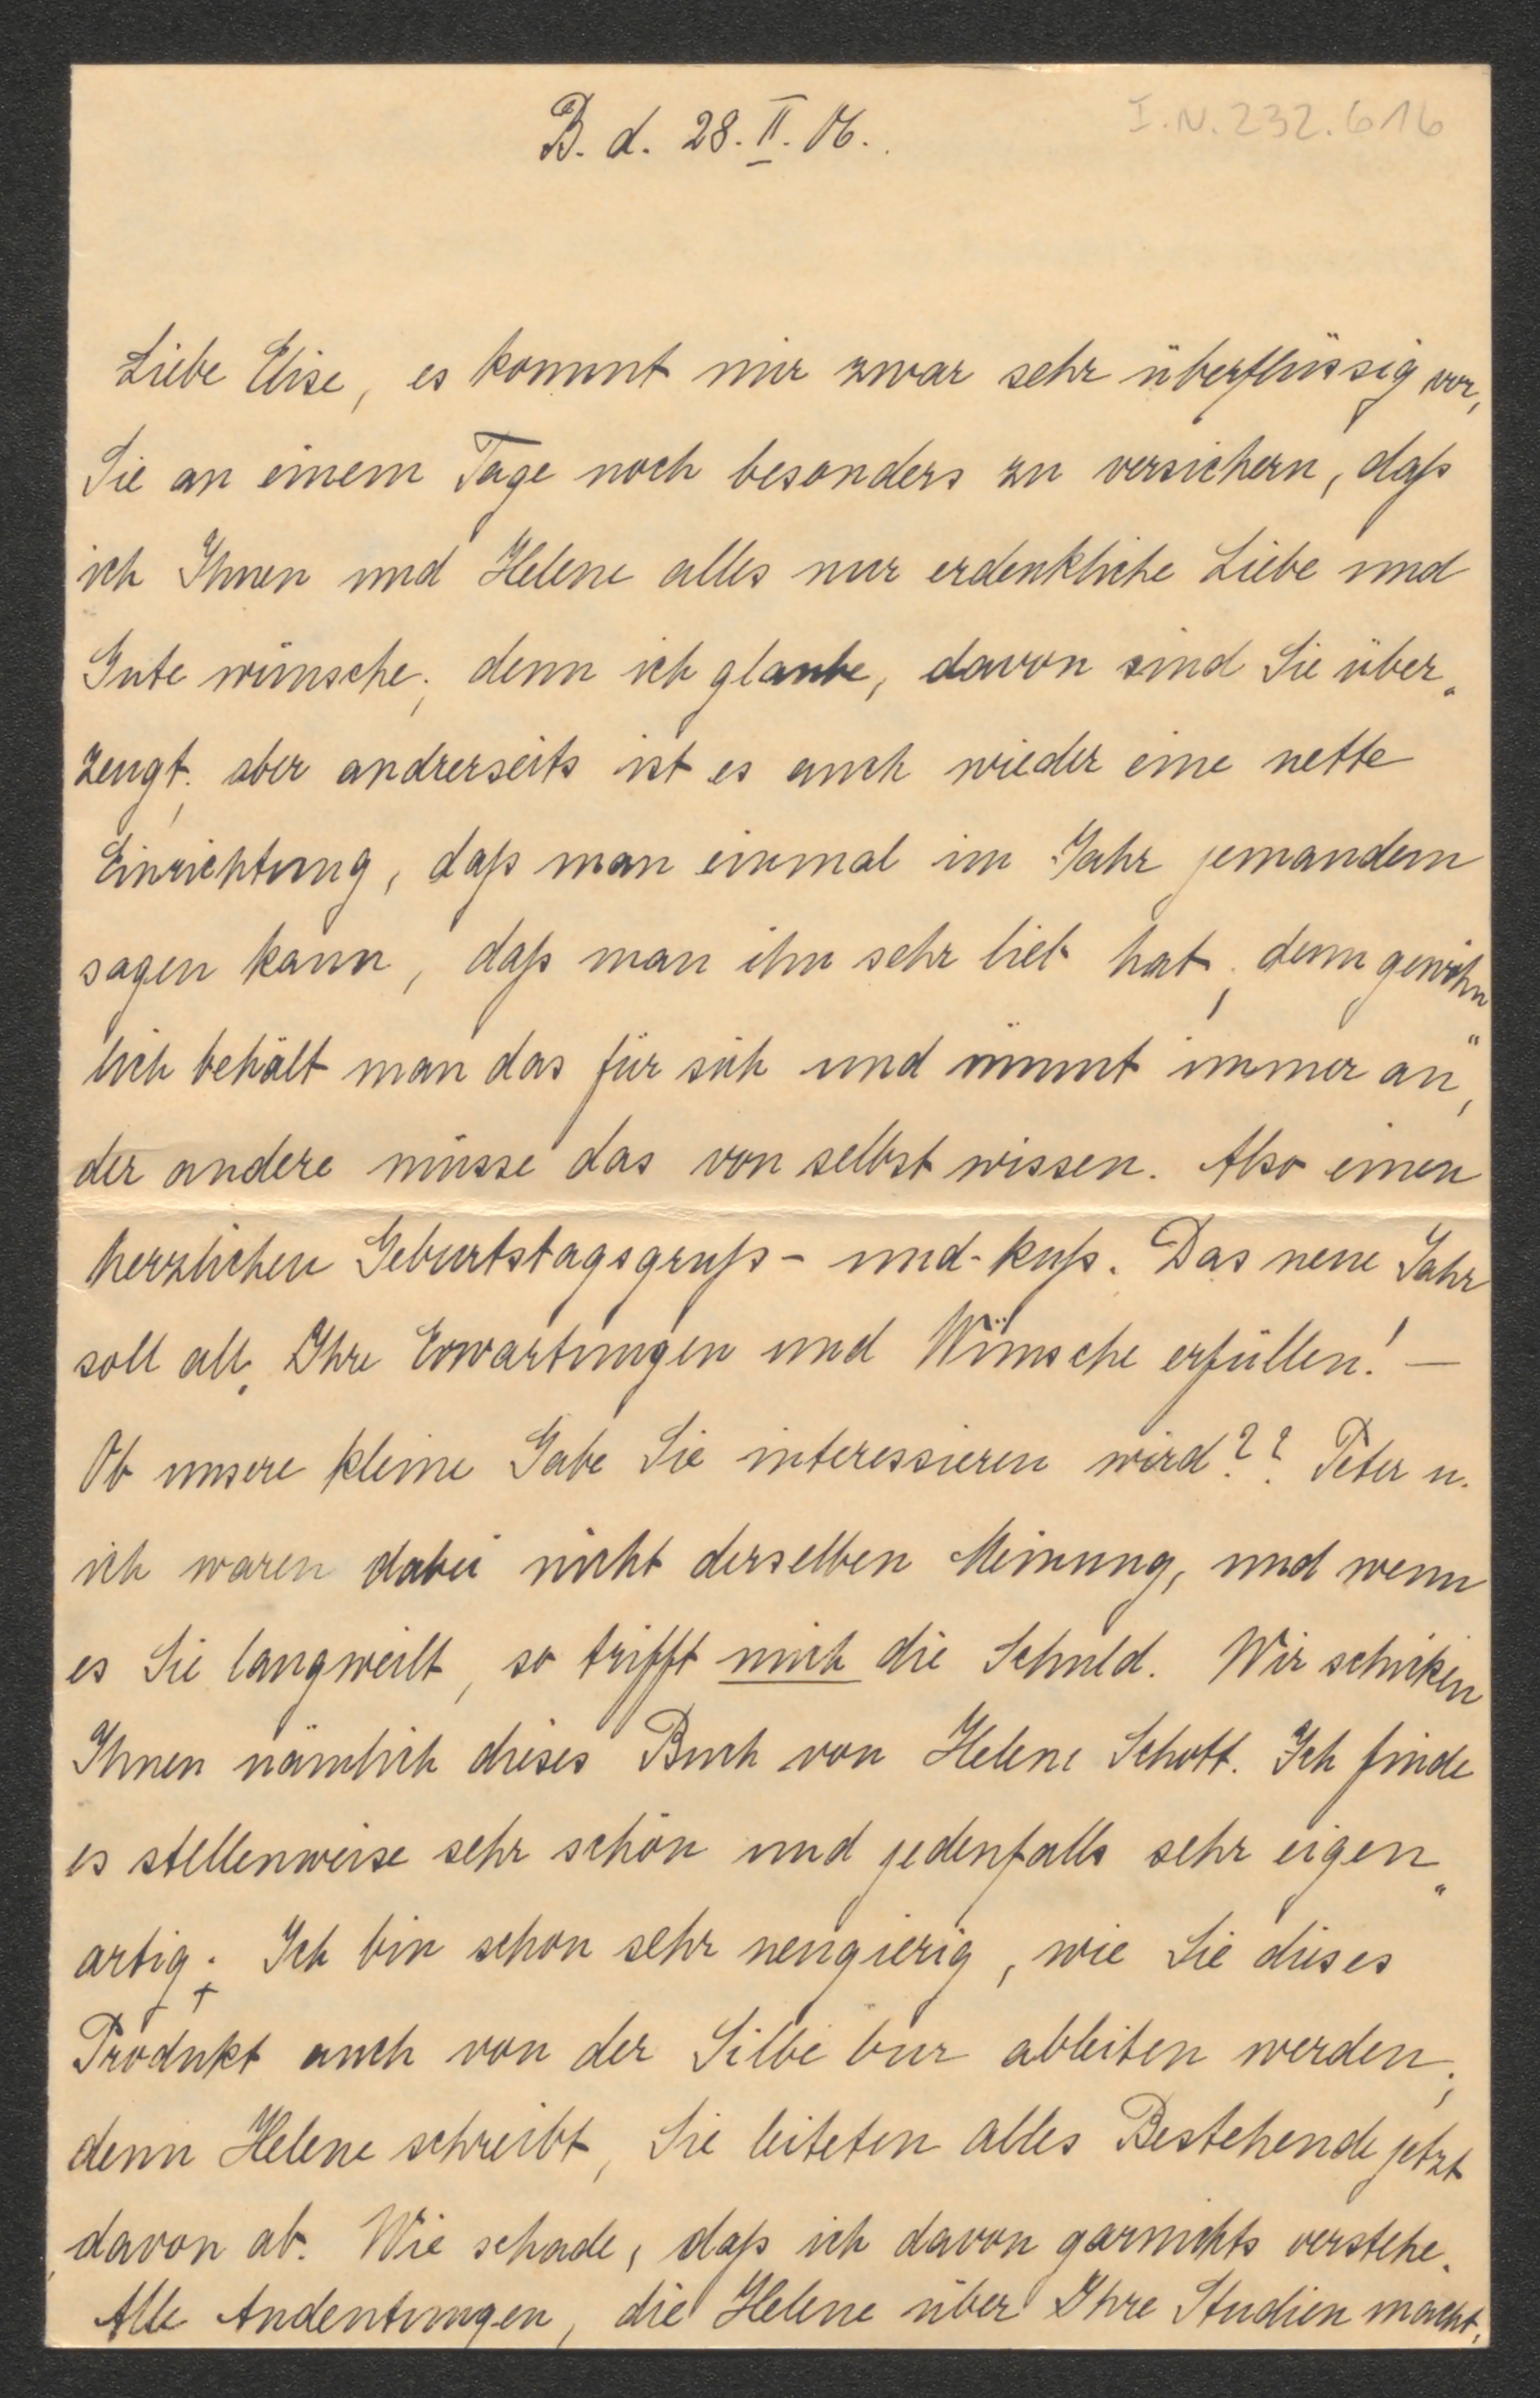 B. d. 28. II. 06.
I.N. 232.616
Liebe Elise, es kommt mir zwar sehr überflüssig vor,
Sie an einem Tage noch besonders zu versichern, daß
ich Ihnen und Helene alles nur erdenkliche Liebe und
Gute wünsche; denn ich glaube, davon sind Sie über„
zeugt; aber andrerseits ist es auch wieder eine nette
Einrichtung, daß man einmal im Jahr jemandem
sagen kann, daß man ihn sehr lieb hat; denn gewöhn„
lich behält man das für sich und nimmt immer an,
der andere müsse das von selbst wissen. Also einen
herzlichen Geburtstagsgruß- und -kuß. Das neue Jahr
soll all. Ihre Erwartungen und Wünsche erfüllen! —
Ob unsere kleine Gabe Sie interessieren wird?? Peter u.
ich waren dabei nicht derselben Meinung, und wenn
es Sie langweilt, so trifft mich die Schuld. Wir schicken
Ihnen nämlich dieses Buch von Helene Schott. Ich finde
es stellenweise sehr schön und jedenfalls sehr eigen„
artig. + Ich bin schon sehr neugierig, wie Sie dieses
Produkt auch von der Silbe bur ableiten werden;
denn Helene schreibt, Sie leiteten alles Bestehende jetzt
davon ab. Wie schade, daß ich davon garnichts verstehe.
Alle Andeutungen, die Helene über Ihre Studien macht,